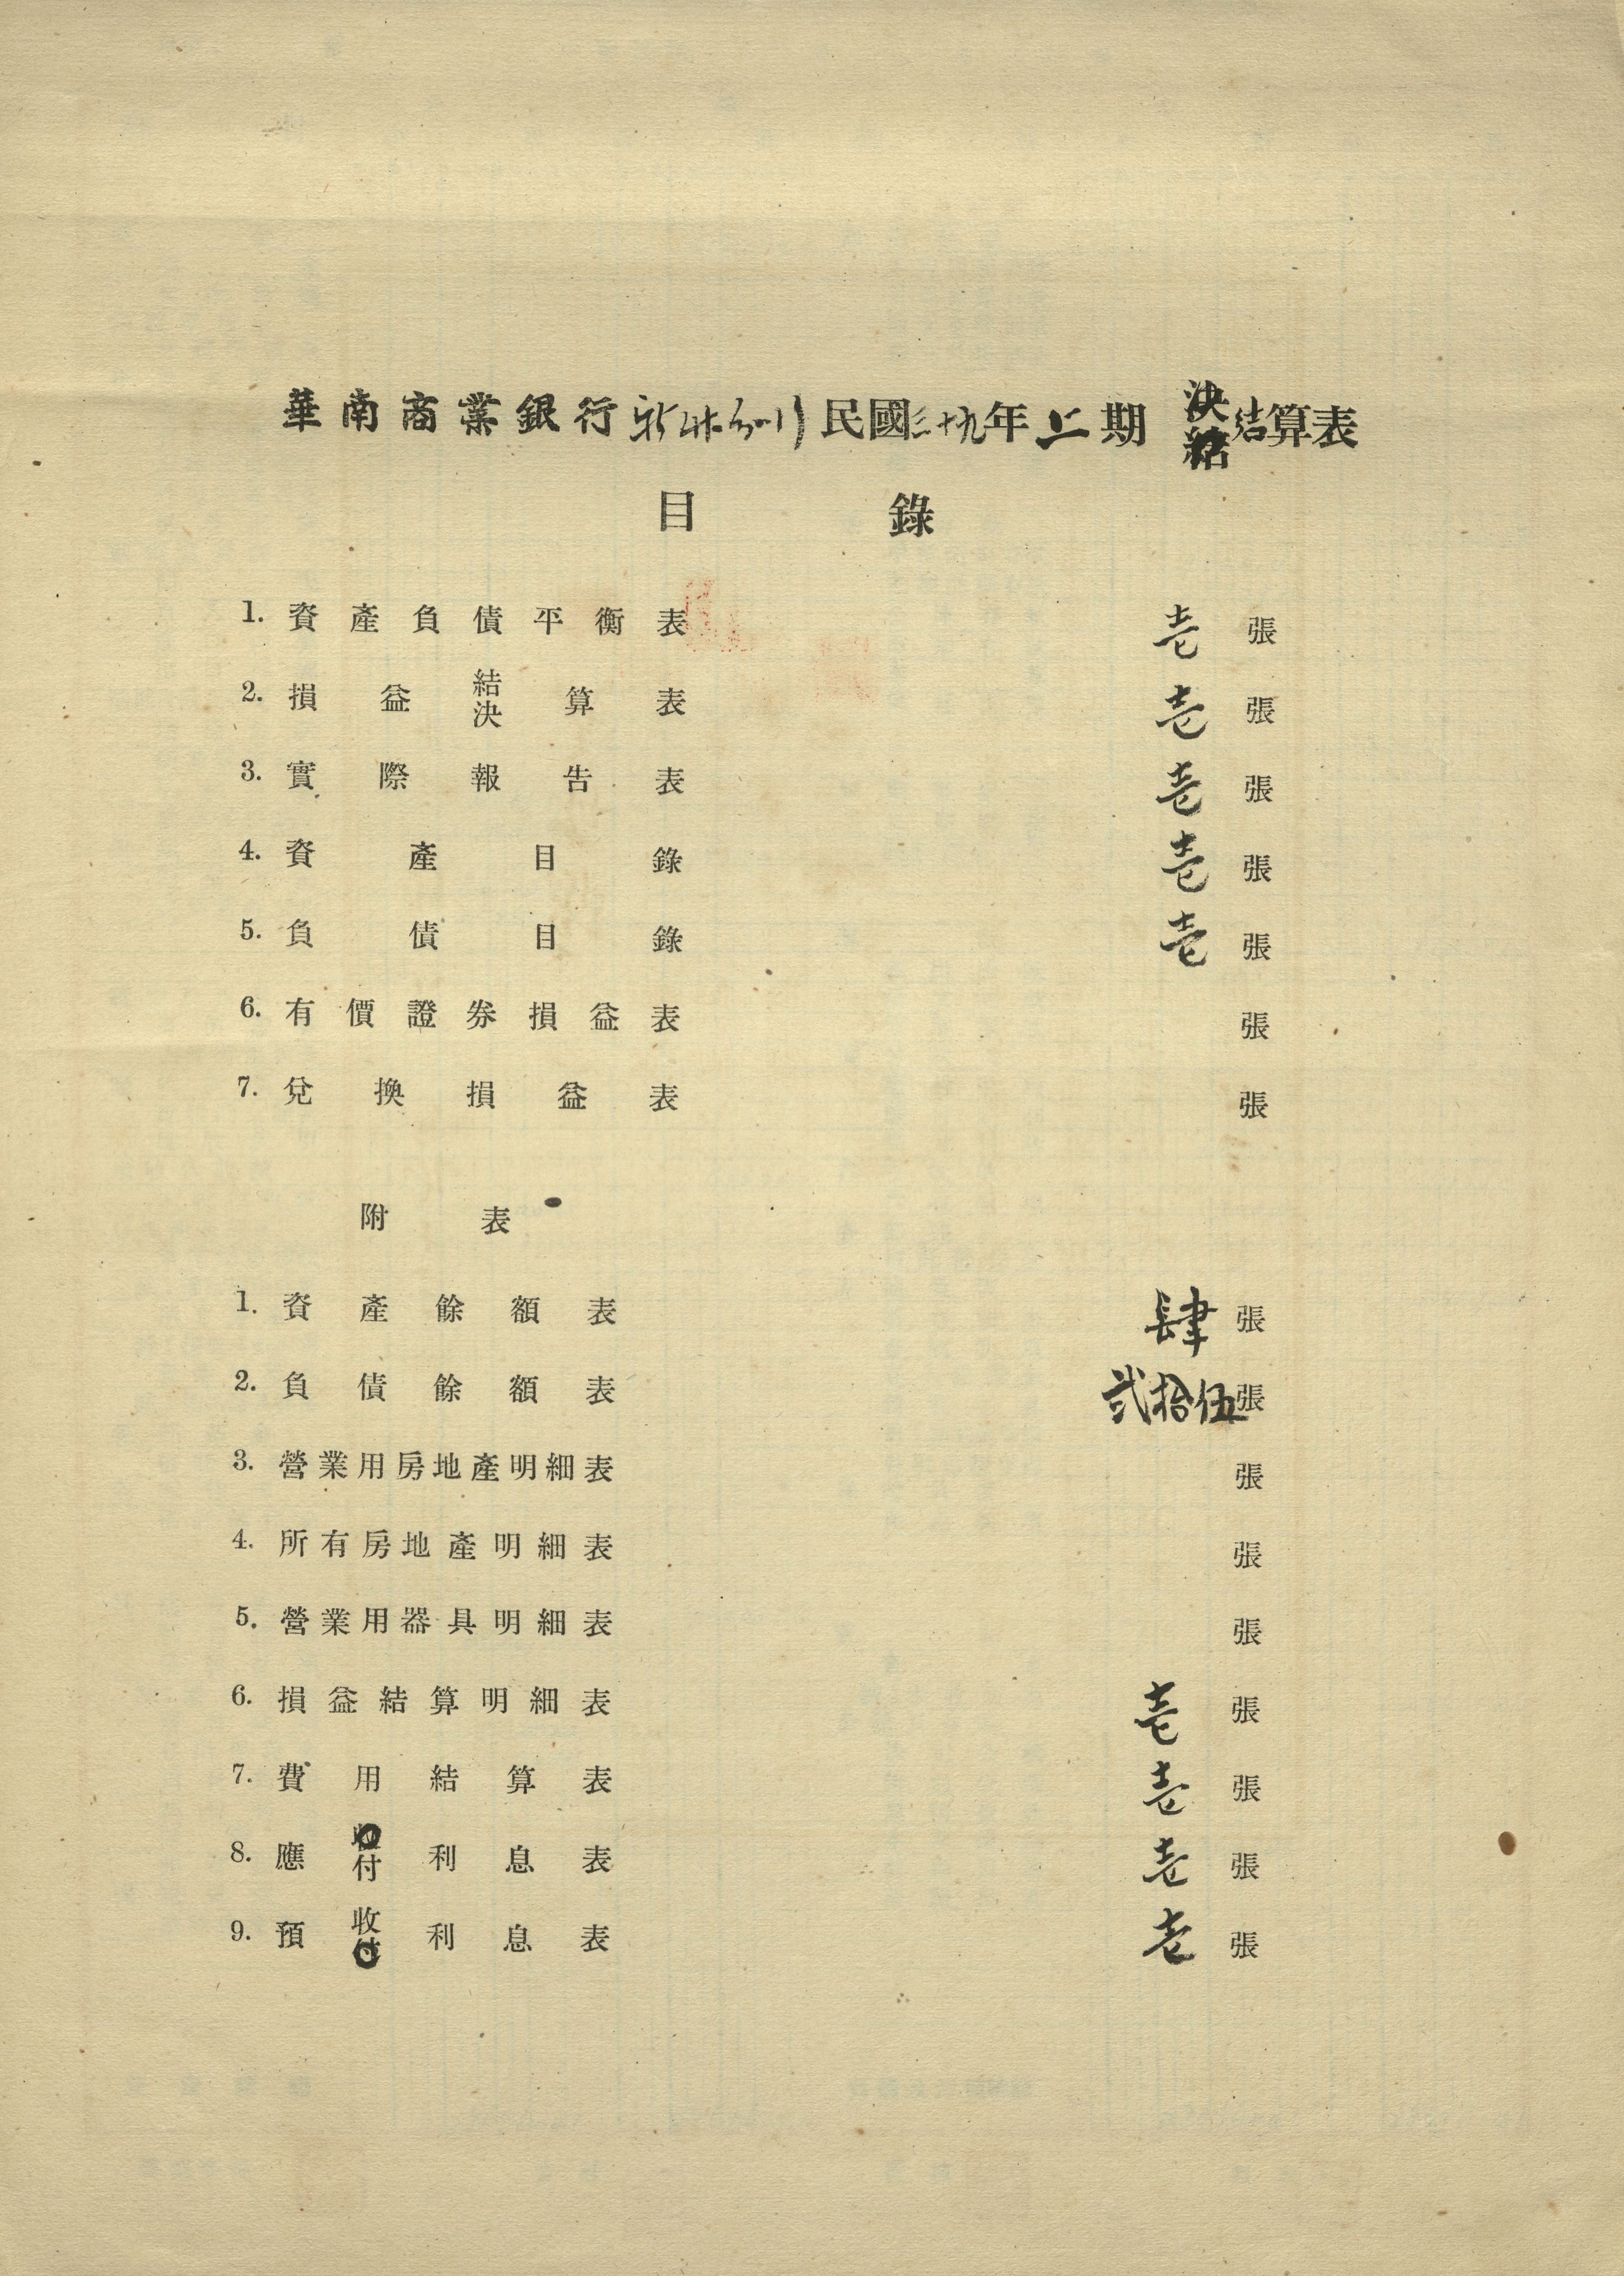 華南商業銀行 分行 民國三十九年上期 決結 結算表
目錄
1. 資產負債平衡表 壱張
2. 損益結決算表 壱張
3. 實際報告表 壱張
4. 資產目錄 壱張
5. 負債目錄 壱張
6. 有價證券損益表 張
7. 兌換損益表 張
附表
1. 資產餘額表 肆張
2. 負債餘額表 弍拾伍張
3. 營業用房地產明細表 張
4. 所有房地產明細表 張
5. 營業用器具明細表 張
6. 損益結算明細表 壱張
7. 費用結算表 壱張
8. 應收付利息表 壱張
9. 預收付利息表 壱張